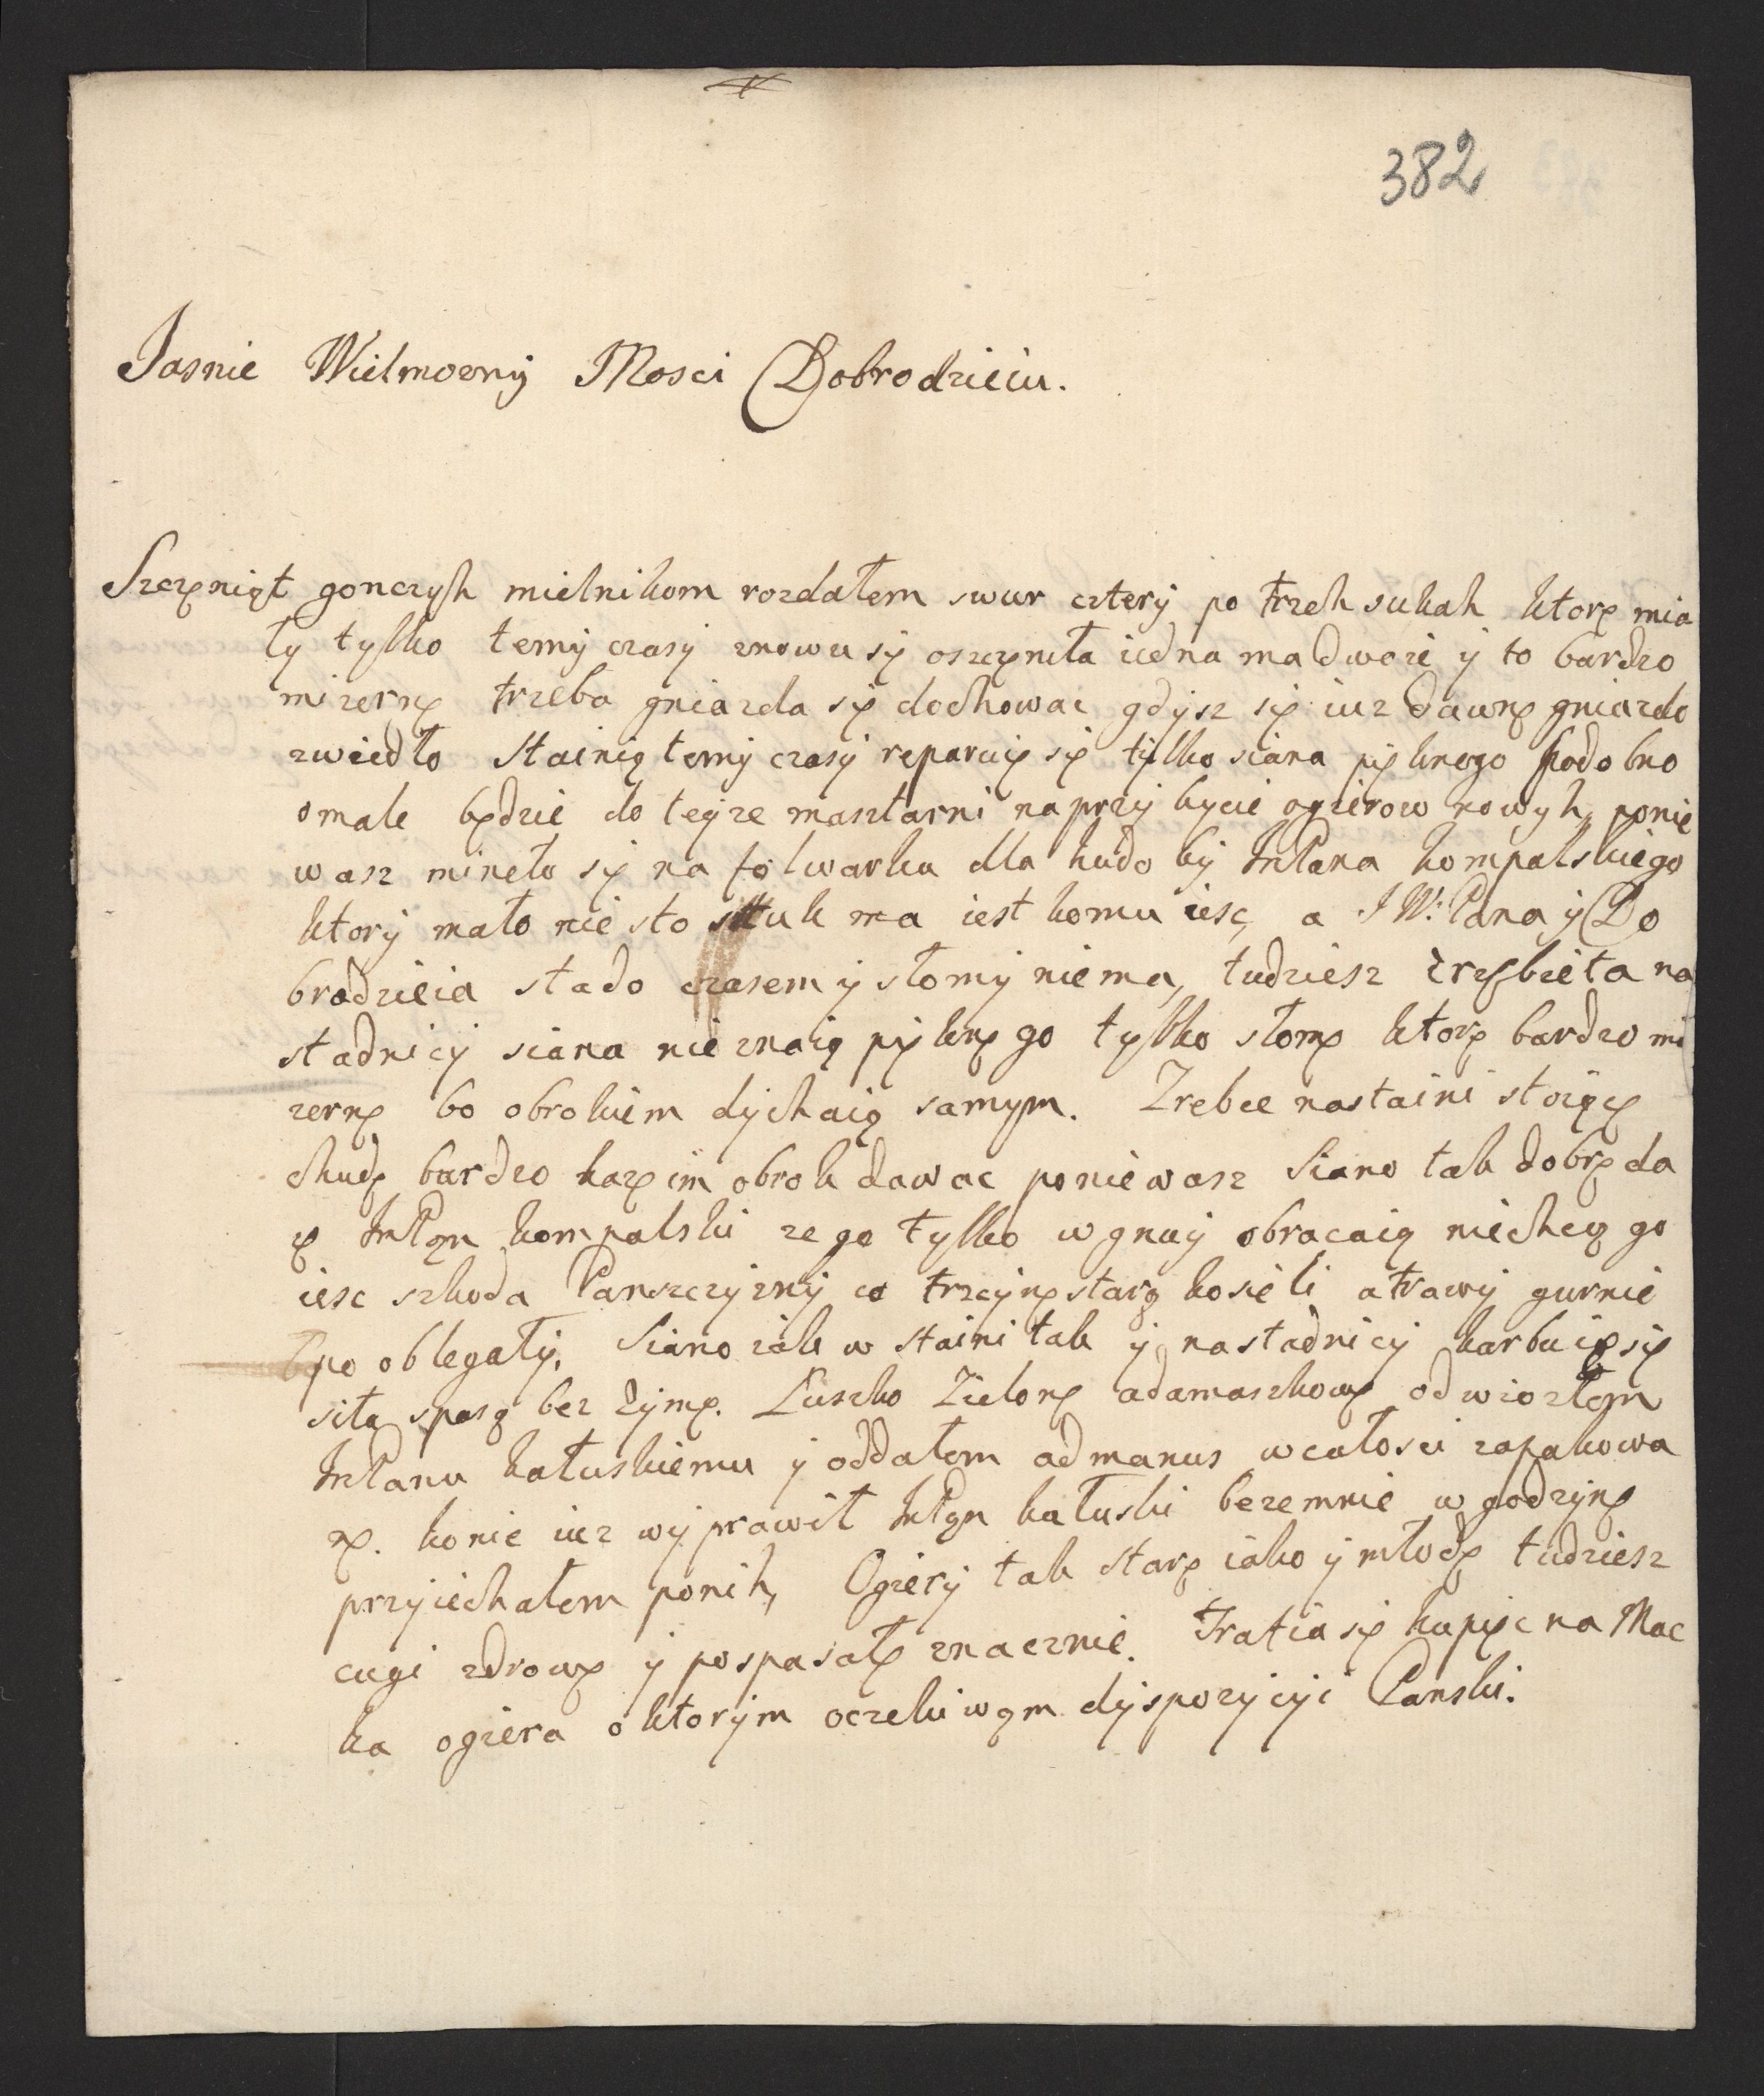 382
Jasnie Wielmozny Mosci Dobrodzieiu.
Szczeniąt gonczyh mielnikom rozdałem swur cztery po trzeh sukah ktore mia
ły tylko temy czasy znowu sy oszczeniła iedna ma dwoie y to bardzo
mizerne trzeba gniazda się dochować gdysz się iuz dawne gniazdo
zwiedło Stainię temy czasy reparuię się tylko siana pięknego podobno
omale będzie do teyze masztarni na przybycie ogierow nowyh, ponie
wasz mineło się na folwarku dla hudoby ImPana kompalskiego
ktory mało nie sto sztuk ma iest komu iesc, a J W: Pana y Do
brodzieia stado czasem y słomy niema, tudziesz zrzebieta na
stadnicy siana nie znaią pięknego tylko słome ktore bardzo mi
zerne bo obrokiem dychaią samym. Zrebce nastaini stoiące
chude bardzo karze im obrok dawac poniewasz Siano tak dobre da
ie ImPan kompalski ze go tylko w gnuy obracaią niechcą go
iesc szkoda Panszczyzny co trzcyne starą kosieli atrawy gurnie
po oblegały. Siano iak w Staini tak y nastadnicy karbuie się
siła spasą bez zyme. Łuszko Zielone adamaszkowe odwiozłem
ImPanu kałuskiemu y oddałem ad manus wcałosci zapakowa
ne. konie iuz wyprawił ImPan kałuski bezemnie w godzyne
przyiechałem ponih, Ogiery tak stare iako y młode tudziesz
cugi zdrowe y pospasałe znacznie. Trafia się kupiec na Mac
ka ogiera o ktorym oczekiwam dyspozycyi Panski.